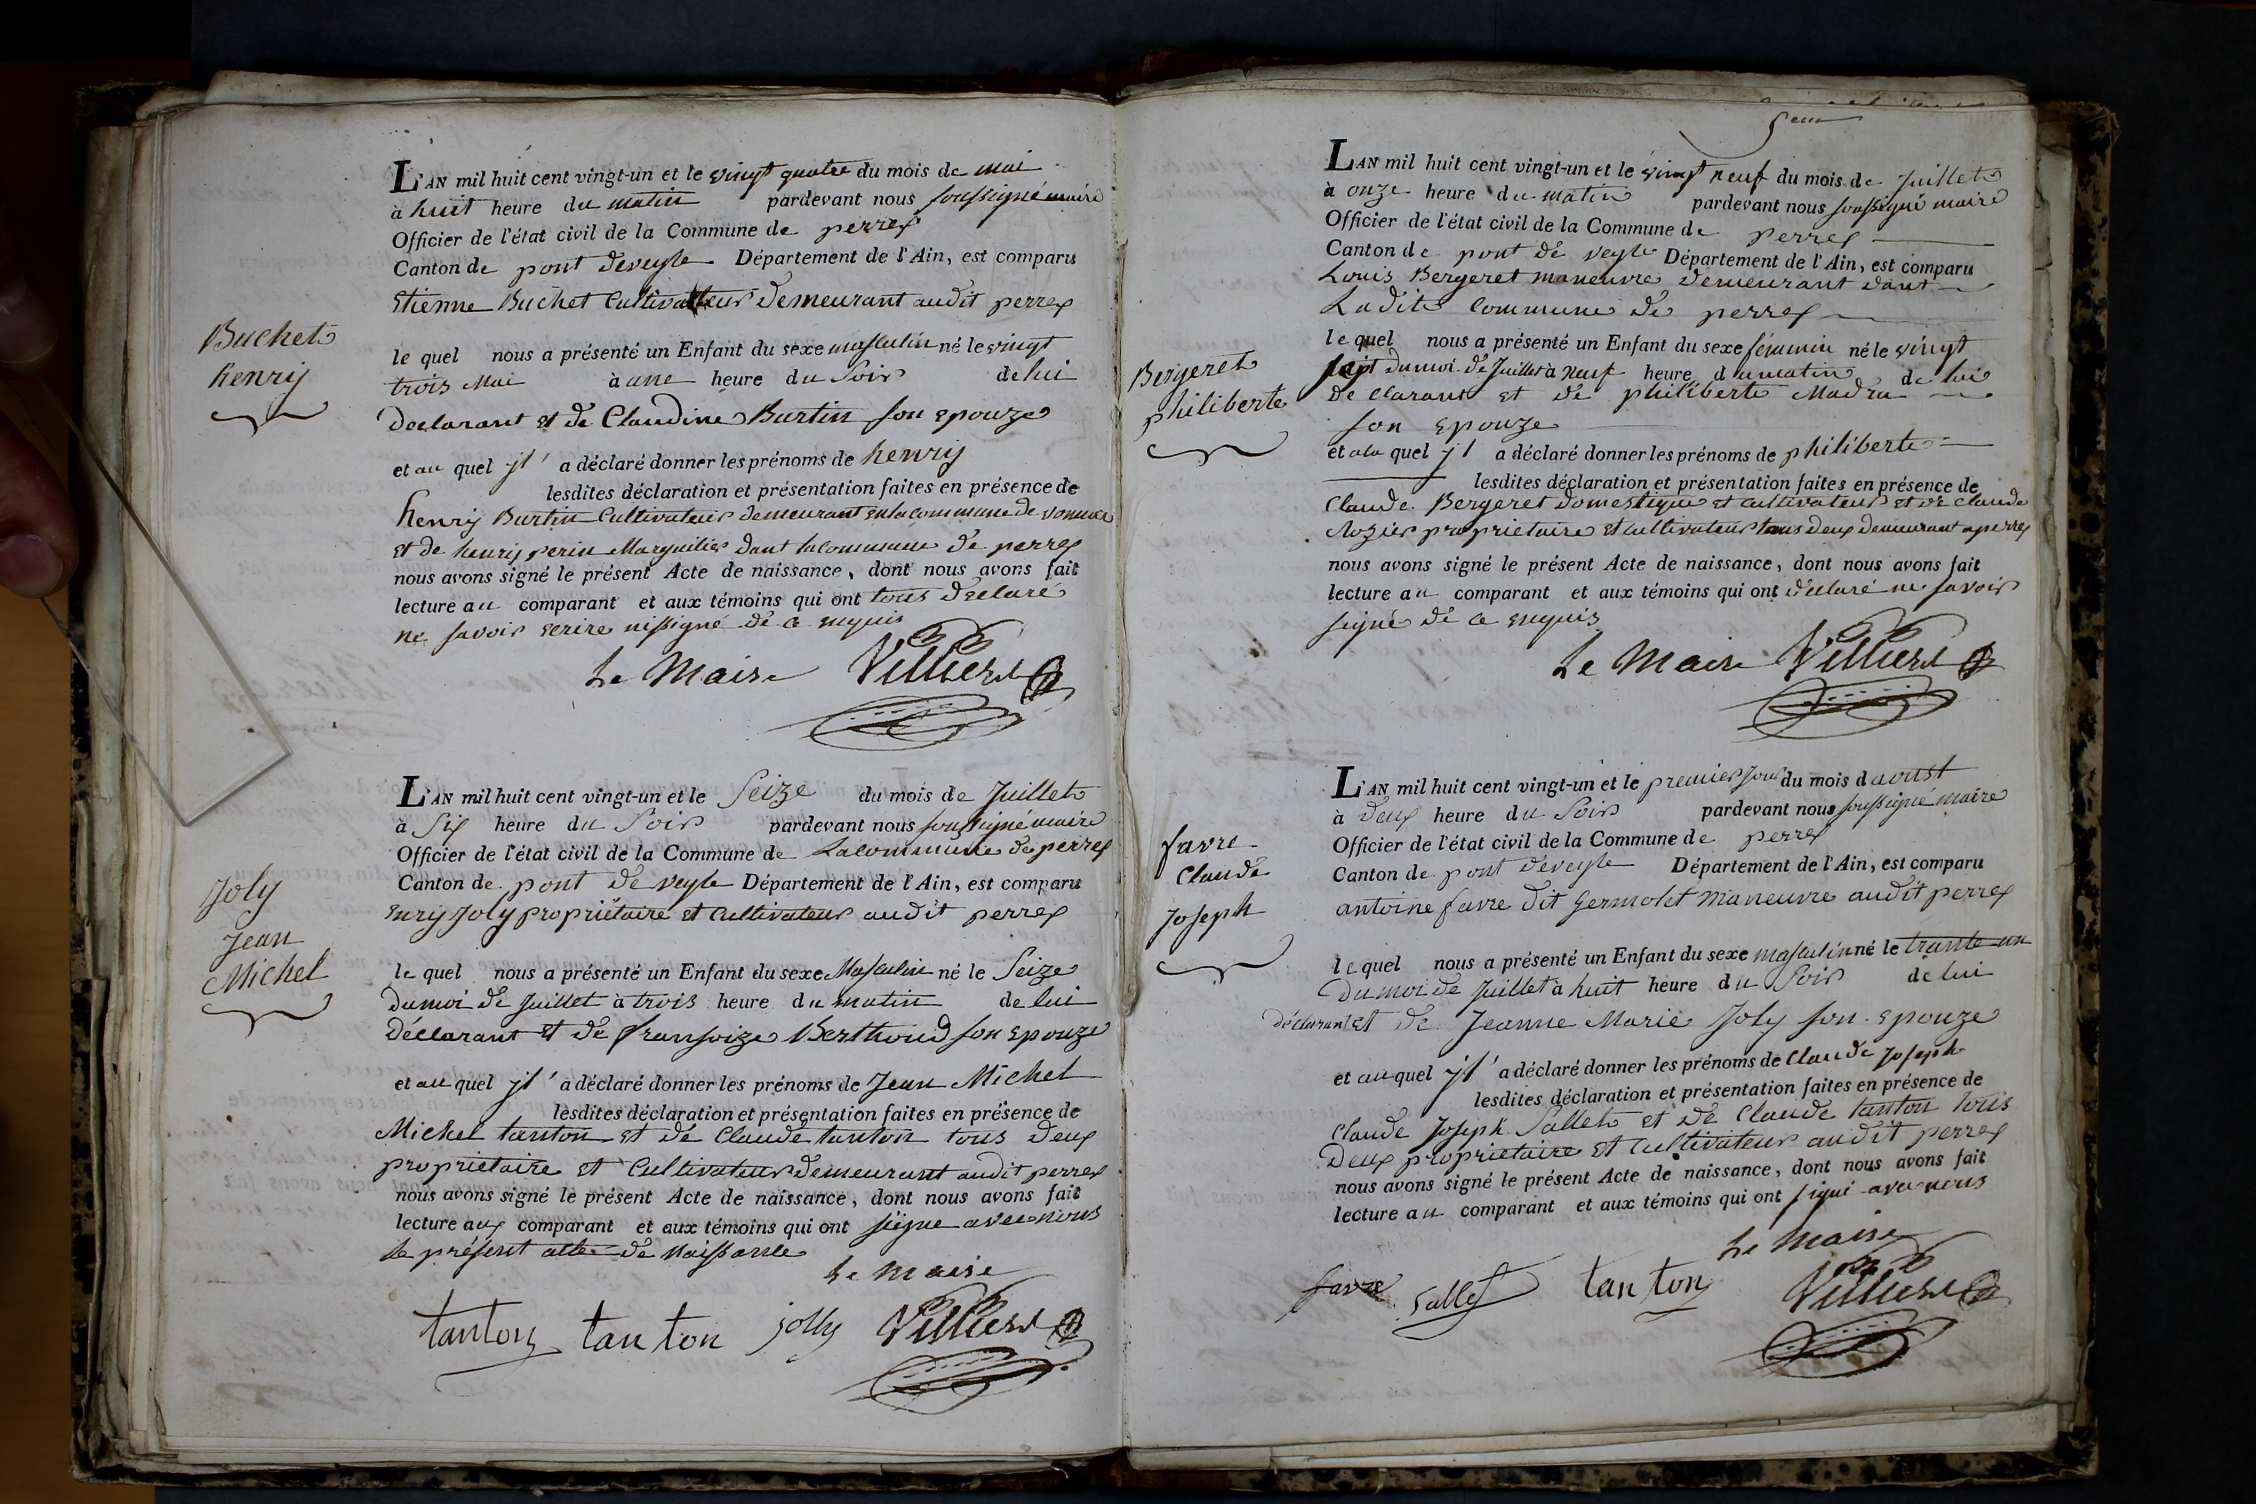 Buchet
henrij
L'AN mil huit cent vingt-un et le vingt quatre du mois de mai
à huit heure du matin pardevant nous soussigné maire
Officier de l'état civil de la Commune de perrex
Canton de pont deveyle Département de l'Ain, est comparu
Etienne Buchet Cultivateur demeurant audit perrex
le quel nous a présenté un Enfant du sexe masculin né le vingt
trois Mai à une heure du Soir de lui
declarant et de Claudine Burtin son Epouze
et au quel yl a déclaré donner les prénoms de henrij
lesdites déclaration et présentation faites en présence de
henrij Burtin Cultivateur demeurant en la commune de vonnas
et de henrij perin Marguilier dant la commune de perrex
nous avons signé le présent Acte de naissance, dont nous avons fait
lecture au comparant et aux témoins qui ont tous déclaré
ne savoir écrire ni signé de ce enquis
Le Maire Villiers
Joly
Jean
Michel
L'AN mil huit cent vingt-un et le Seize du mois de Juillet
à Six heure du Soir pardevant nous soussigné maire
Officier de l'état civil de la Commune de La commune de perrex
Canton de pont de veyle Département de l'Ain, est comparu
Enrij Joly propriétaire et Cultivateur audit perrex
le quel nous a présenté un Enfant du sexe Masculin né le Seize
du moi de Juillet à trois heure du matin de lui
Déclarant et de fransoize Berthoud son Epouze
et au quel yl a déclaré donner les prénoms de Jean Michel
lesdites déclaration et présentation faites en présence de
Michel tanton et de Claude tanton tous deux
proprietaire et Cultivateur demeurant audit perrex
nous avons signé le présent Acte de naissance, dont nous avons fait
lecture aux comparant et aux témoins qui ont signe avec nous
le présent acte de Naissance
Le maire
tanton tanton jolly Villiers
5eme
Bergeret
philiberte
L'AN mil huit cent vingt-un et le vingt neuf du mois de Juillet
à onze heure du matin pardevant nous soussigné maire
Officier de l'état civil de la Commune de perrex
Canton de pont de veyle Département de l'Ain, est comparu
Louis Bergeret maneuvre demeurant dant
Ladite Commune de perrex
le quel nous a présenté un Enfant du sexe féminin né le vingt
sept du moi de Juillet à neuf heure du matin de lui
declarant et de philiberte Madru
son Epouze
et ala quel yl a déclaré donner les prénoms de philiberte
lesdites déclaration et présentation faites en présence de
Claude Bergeret domestique et cultivateur et de Claude
Rozier proprietaire et cultivateur tous deux demeurant a perrex
nous avons signé le présent Acte de naissance, dont nous avons fait
lecture au comparant et aux témoins qui ont déclaré ne savoir
signé de ce enquis
Le Maire Villiers
favre
Claude
Joseph
L'AN mil huit cent vingt-un et le premier jour du mois d aoust
à deux heure du Soir pardevant nous soussigné maire
Officier de l'état civil de la Commune de perrex
Canton de pont deveyle Département de l'Ain, est comparu
antoine favre dit Germolet maneuvre audit perrex
le quel nous a présenté un Enfant du sexe masculin né le trante un
du moi de Juillet à huit heure du Soir de lui
déclarant et de Jeanne Marie Joly son Epouze
et au quel yl a déclaré donner les prénoms de Claude Joseph
lesdites déclaration et présentation faites en présence de
Claude Joseph Sallet et de Claude tanton tous
Deux proprietaire et cultivateur audit perrex
nous avons signé le présent Acte de naissance, dont nous avons fait
lecture au comparant et aux témoins qui ont signé avec nous
Le Maire
favre Sallet tanton Villiers